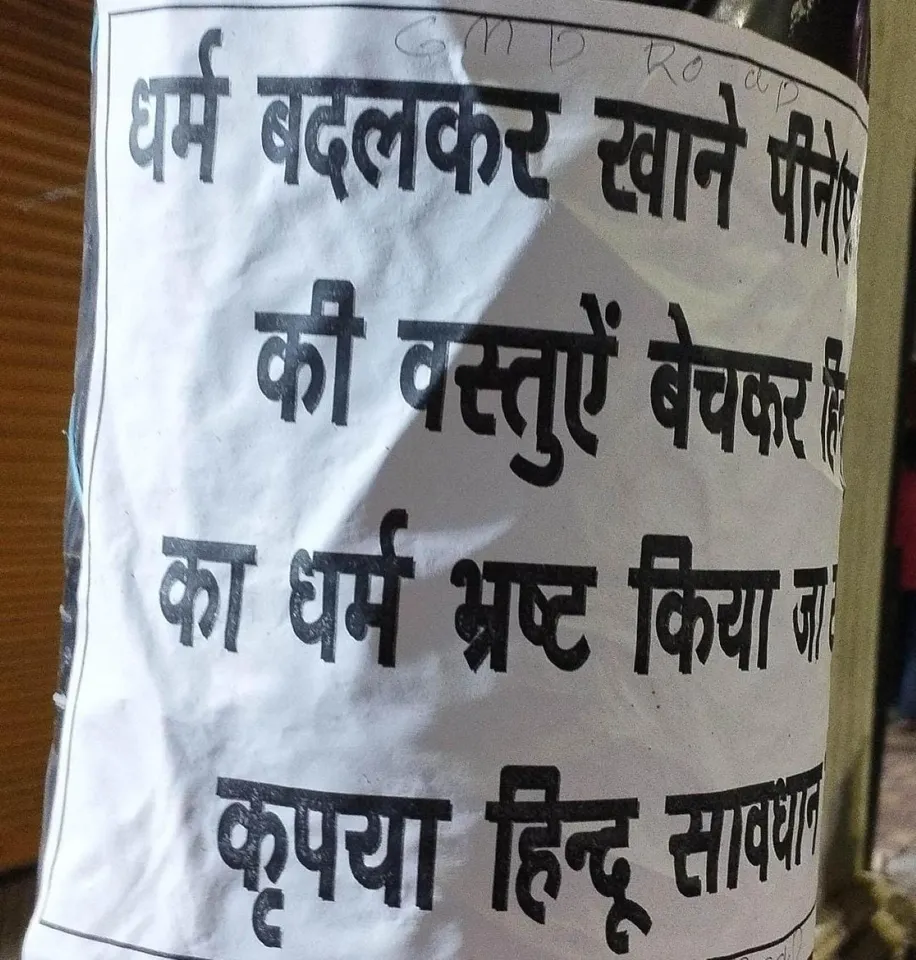 GMD Road
धर्म बदलकर खाने पीने
की वस्तुऐं बेचकर
का धर्म भ्रष्ट किया जा
कृपया हिन्दू सावधान